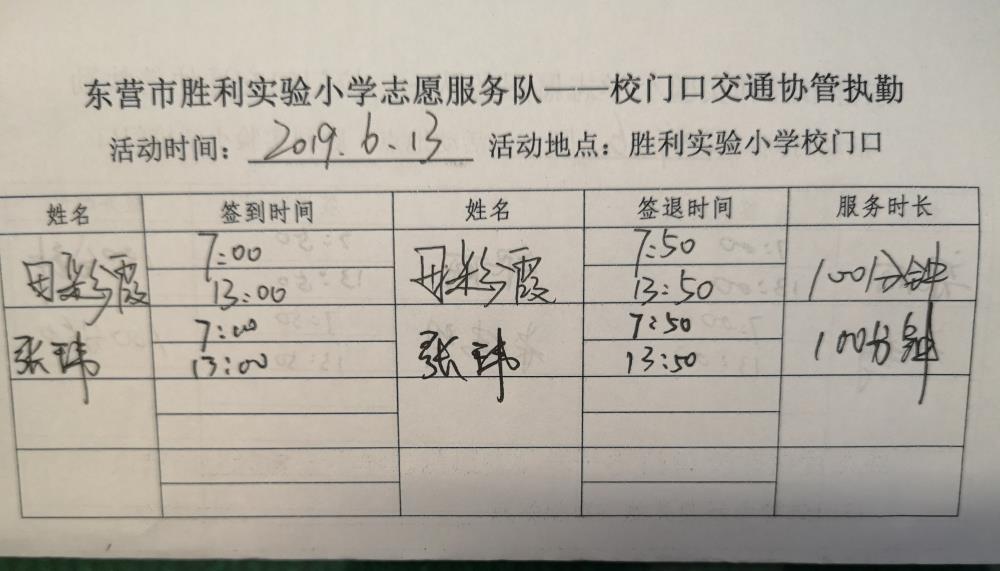 东营市胜利实验小学志愿服务队——校门口交通协管执勤
活动时间：2019.6.13 活动地点：胜利实验小学校门口
姓名 签到时间 姓名 签退时间 服务时长
7:00 7:50
彩霞 彩霞 100分钟
13:00 13:50
7:00 7:50
张玮 张玮 100分钟
13:00 13:50